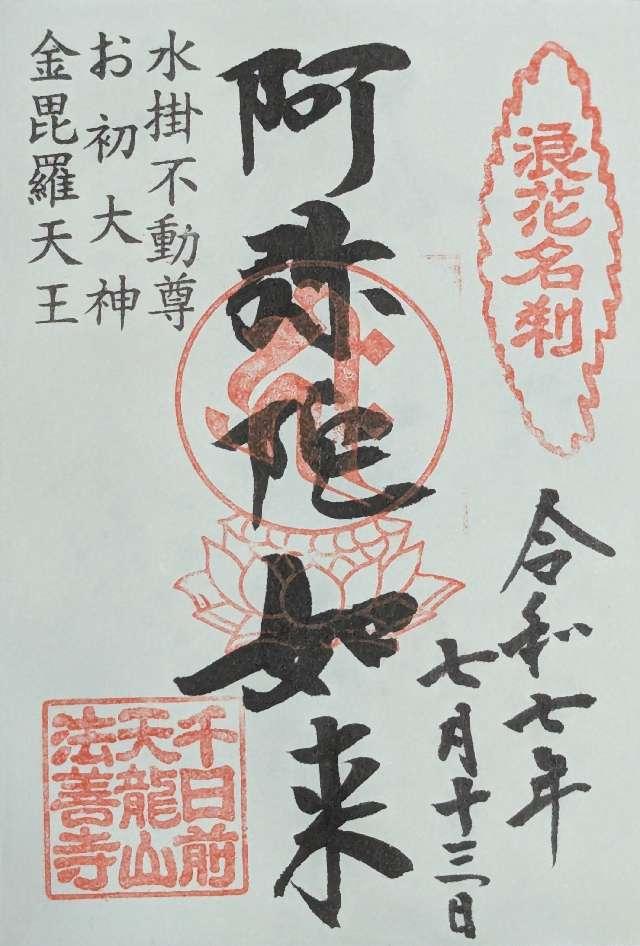 浪花名刹
令和七年
七月十三日
阿弥陀如来
水掛不動尊
お初大神
金毘羅天王
千日前
天龍山
法善寺